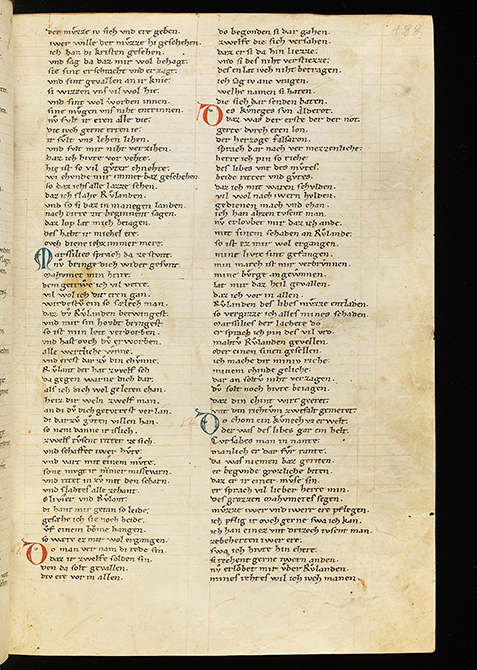 der müzze iv sich vnd ere geben.
swer wille der müzze hi geschehen.
ich han di kristen gesehen.
vnd sag da daz mir wol behagt
sie sint erschracht vnd er zagt.
vnd sint gevallen an ir knie.
si wizzen vns vil wol hie.
vnd sint wol worden innen.
sine mvgen vns niht entrinnen.
nv svlt ir eren alle die.
die ivch gerne eren ie.
ir svlt vns lehen lihen.
vnd svlt mir niht verzihen.
daz ich hivte vor vehte.
hie ist so vil gvter chnehte.
so daz ichs alle lazze sehen.
daz ich slahe Rvlanden.
vnd so si daz in manegen landen.
nach dirre zit beginnent sagen.
daz lop lat mich beiagen.
des habt ir michel ere.
ovch diene ich immer mere.
Marsilies sprach da ze stvnt.
nv bringe dich wider gesvnt.
mahvmet min herre.
dem getrwe ich vil verre.
vil wol ich dir eren gan.
wirdestv ein so sælech man.
daz dv Rvlanden betwingest.
vnd mir sin hovbt bringest.
so ist min leit verdorben.
vnd hast ovch dv erworben.
alle wertliche wnne.
vnd erest dar zv din chvnne.
Rvlant der hat zwelf sich
da gegen warne dich dar.
als ich dich wol geleren chan.
herz dir weln zwelf man.
an di dv dich getvrrest verlan.
di dar zv gvten willen han.
so nem danne ir islich.
zwelf tvsent ritter ze sich.
vnd schaffet iwer hvte.
vnd vart mit einem mvte.
sone mvgt ir nimer misse varn.
vnd ritet in zv mit den scharn.
vnd slahtet alle zehant.
Olivier vnd Rvlant.
di hant mir getan so leide.
gesehe ich sie noch beide.
vf einem bovme hangen.
so were ez mir wol ergangen.
Do man ver nam di rede sin.
daz ir zwelfe solden sin.
den da solt gevallen.
div ere vor in allen.
do begonden si dar gahen.
zwelfe die sich versahen.
daz er si da hin lieze.
vnd si des niht verstieze.
des en lat ivch niht betragen.
ich sag iv ane vragen.
welhe namen si haten.
die sich dar senden baten.
Des kvneges svn Alderot.
daz was der erste der der not.
gerte dvrch eren lon.
der herzoge falsaron.
sprach dar nach vermezzenliche.
herre ich pin so riche.
des libes vnt des mvtes.
beide ritter vnd gvtes.
daz ich mit waren schvlden.
vil wol nach iwern hvlden.
gedienen mach vnd chan.
ich han ahzen tvsent man.
nv erlovbet mir daz ich ande.
mit sinem schaden an Rvlande.
so ist ez mir wol ergangen.
mine livte sint gefangen.
min march ist mir verbrunnen.
mine bvrge an gewnnen.
lat mir daz heil gevallen.
daz ich vor in allen.
Rvlanden des libes mvzze entladen.
so vergizze ich alles mines schaden.
Marssilies der lachete do
er sprach ich pin des vil vro.
mahtv Rvlanden gevellen.
oder einen sinen gesellen.
ich mache dir miniv riche.
minem chinde geliche.
dar an soltv niht verzagen.
dv solt noch hivte beiagen.
daz din chint wirt geeret.
vnt din richtvm zwifalt gemeret.
Do chom ein kvnech vz erwelt.
der was des libes gar ein helt.
Tvrtabes man in nante.
manlich er dar fvr rante.
da was niemen baz geriten.
er begunde grozliche biten.
daz er ir einer mvse sin.
er sprach vil lieber herre min.
des grozzen mahvmetes segen.
mvzze iwer vnd iwerr ere pflegen.
ich pflig ir ovch gerne swa ich kan.
ich han einez vnt drizech tvsent man.
ze beherten iwer ere.
swa ich hivte hin chere.
si vehtent gerne iwern anden.
nv erlobet mir vber Rvlanden.
mines rehtes wil ich ivch manen